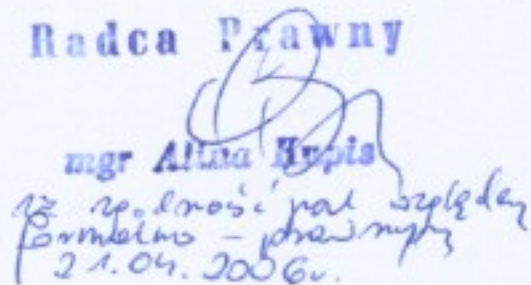 Radca Prawny
mgr Alina Kupis
za zgodność pod względem
formalno – prawnym
21.04.2006r.